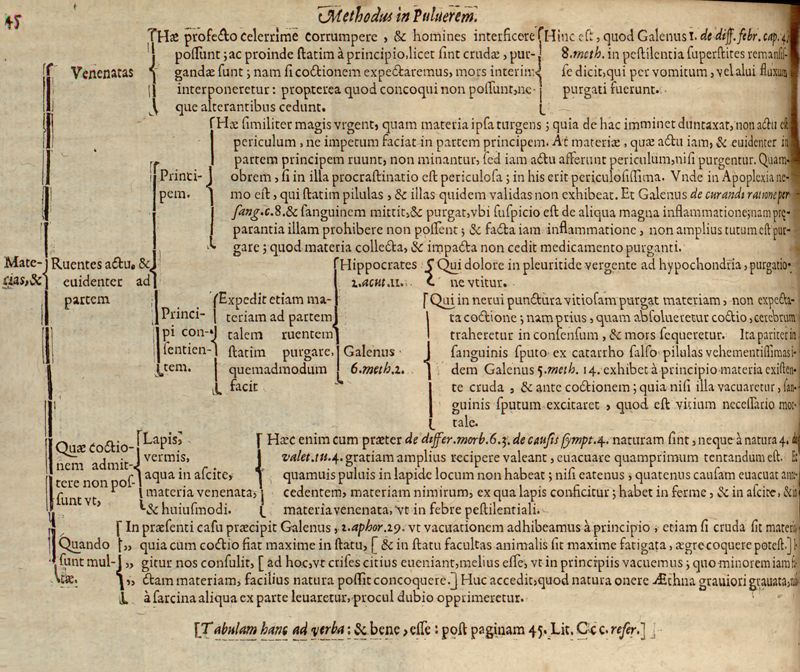 45
Methodus in Puluerem.
Mate-
cias, &
Venenatas
Hæ profecto celerrime corrumpere , & homines interficere
possunt; ac proinde statim à principio, licet sint crudæ, pur-
gandæ sunt; nam si coctionem expectaremus, mors interim
interponeretur: propterea quod concoqui non possunt, ne-
que alterantibus cedunt.
Hinc est, quod Galenus 1. de diff. febr. cap. 4.
8. meth. in pestilentia superstites remansis-
se dicit, qui per vomitum, vel alui fluxum
purgati fuerunt.
Ruentes actu, &
euidenter ad
partem
Princi-
pem.
Hæ similiter magis vrgent, quam materia ipsa turgens; quia de hac imminet duntaxat, non actu est
periculum, ne impetum faciat in partem principem. At materiæ, quæ actu iam, & euidenter in
partem principem ruunt, non minantur, sed iam actu afferunt periculum, nisi purgentur. Quam-
obrem, si in illa procrastinatio est periculosa; in his erit periculosissima. Vnde in Apoplexia ne-
mo est, qui statim pilulas , & illas quidem validas non exhibeat. Et Galenus de curandi ratione per
sang. c. 8. & sanguinem mittit, & purgat, vbi suspicio est de aliqua magna inflammatione; nam præ-
parantia illam prohibere non possent; & facta iam inflammatione , non amplius tutum est pur-
gare; quod materia collecta, & impacta non cedit medicamento purganti.
Princi-
pi con-
sentien-
tem.
Expedit etiam ma-
teriam ad partem
talem ruentem
statim purgare,
quemadmodum
facit
Hippocrates
2. acut. 11.
Qui dolore in pleuritide vergente ad hypochondria, purgatio-
ne vtitur.
Galenus
6. meth. 2.
Qui in nerui punctura vitiosam purgat materiam , non expecta-
ta coctione ; nam prius, quam absolueretur coctio, cerebrum
traheretur in consensum , & mors sequeretur. Ita pariter in
sanguinis sputo ex catarrho salso pilulas vehementissimas i-
dem Galenus 5. meth. 14. exhibet à principio materia existen-
te cruda , & ante coctionem; quia nisi illa vacuaretur, san-
guinis sputum excitaret , quod est vitium necessario mor-
tale.
Quæ coctio-
nem admit-
tere non pos-
sunt vt,
Lapis,
vermis,
aqua in ascite,
materia venenata,
& huiusmodi.
Hæc enim cum præter de differ. morb. 6. 3. de causis sympt. 4. naturam sint, neque à natura 4. de
valet. tu. 4. gratiam amplius recipere valeant, euacuare quamprimum tentandum est. Et
quamuis puluis in lapide locum non habeat; nisi eatenus , quatenus causam euacuat ante-
cedentem, materiam nimirum, ex qua lapis conficitur; habet in ferme , & in ascite, & in
materia venenata, vt in febre pestilentiali.
Quando
sunt mul-
tæ.
In præsenti casu præcipit Galenus , 2. aphor. 29. vt vacuationem adhibeamus à principio , etiam si cruda sit materia
„ quia cum coctio fiat maxime in statu, [ & in statu facultas animalis sit maxime fatigata, ægre coquere potest.]
„ gitur nos consulit, [ ad hoc, vt crises citius eueniant, melius esse, vt in principiis vacuemus ; quo minorem iam
„ ctam materiam, facilius natura possit concoquere.] Huc accedit, quod natura onere Æthna grauiori grauata,
à sarcina aliqua ex parte leuaretur, procul dubio opprimeretur.
[Tabulam hanc ad verba: & bene , esse : post paginam 45. Lit. C c c. refer.]